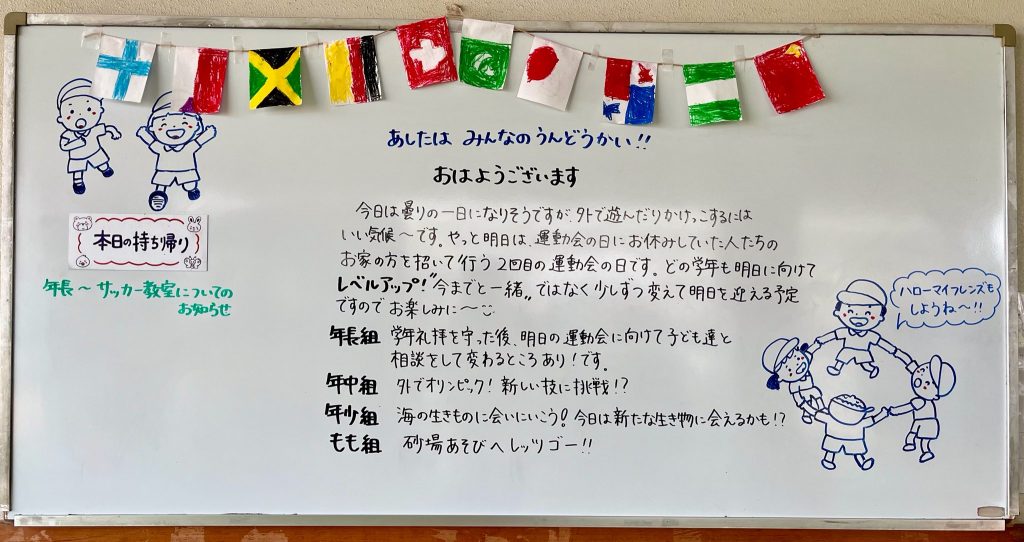 あしたは みんなのうんどうかい!!
おはようございます
今日は曇りの一日になりそうですが、外で遊んだりかけっこするには
いい気候〜です。やっと明日は、運動会の日にお休みしていた人たちの
お家の方を招いて行う2回目の運動会の日です。どの学年も明日に向けて
レベルアップ!"今までと一緒"ではなく少しずつ変えて明日を迎える予定
ですのでお楽しみに〜
年長組 学年礼拝を守った後、明日の運動会に向けて子ども達と
相談をして変わるところあり!です。
年中組 外でオリンピック!新しい技に挑戦!?
年少組 海の生きものに会いにいこう!今日は新たな生き物に会えるかも!?
もも組 砂場あそびへレッツゴー!!
本日の持ち帰り
年長〜サッカー教室についての
お知らせ
ハローマイフレンズも
しようね〜!!